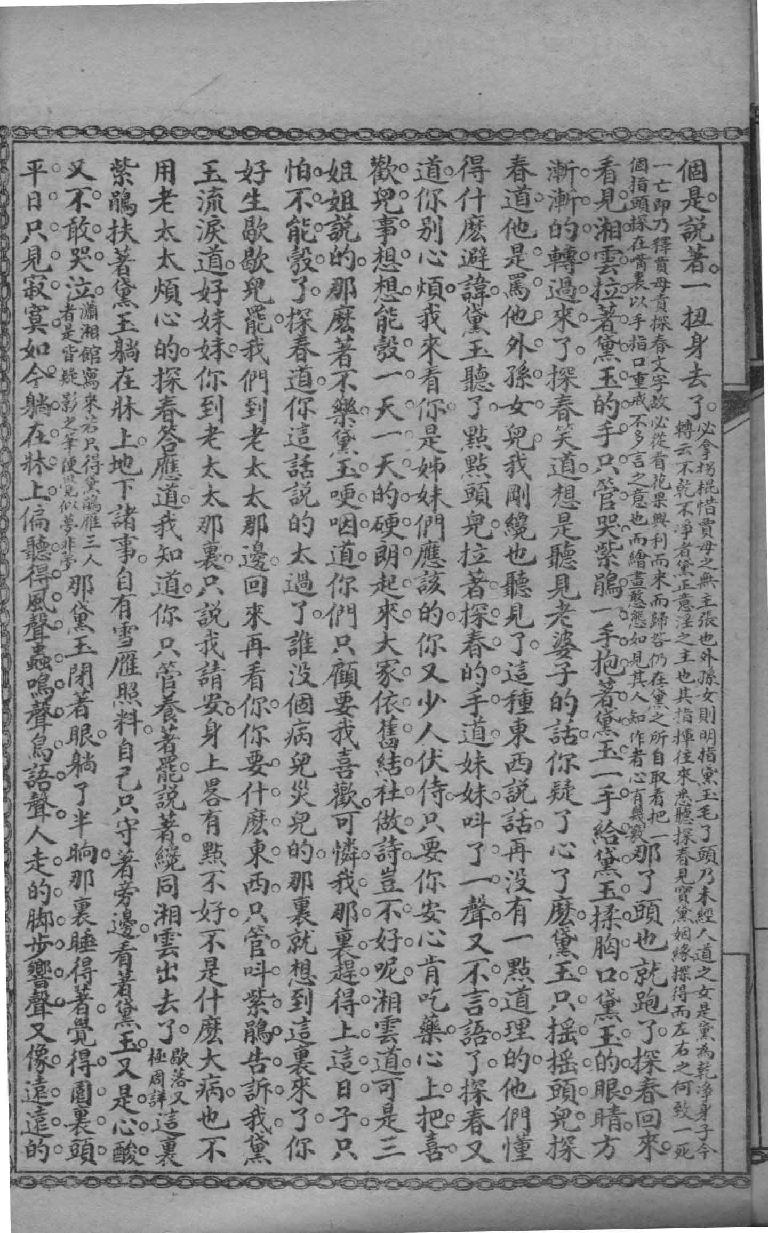 個是說著一扭身去了必拿拐棍惜賈母之無主張也外孫女則明指黛玉毛了頭乃未經人道之女是黛為乾淨身子今
轉云不乾不淨者黛正意淫之主也其指揮往來悉聽探春見寶黛姻緣探得而左右之何致一死
一亡即乃釋賈母責探春文字故必從看花果興利而來而歸咎仍在黛之所自取者把一
個指頭探在嘴裏以手指口重戒不多言之意也而繪畫憨態如見其人知作者心有幾竅那了頭也就跑了探春回來
看見湘雲拉著黛玉的手只管哭紫鵑一手抱著黛玉一手給黛玉揉胸口黛玉的眼睛方
漸漸的轉過來了探春笑道想是聽見老婆子的話你疑了心了麼黛玉只搖搖頭兒探
春道他是罵他外孫女兒我剛纔也聽見了這種東西說話再沒有一點道理的他們懂
得什麼避諱黛玉聽了點點頭兒拉著探春的手道妹妹叫了一聲又不言語了探春又
道你别心煩我來看你是姊妹們應該的你又少人伏侍只要你安心肯吃藥心上把喜
歡兒事想想能彀一天一天的硬朗起來大家依舊結社做詩豈不好呢湘雲道可是三
姐姐說的那麼著不樂黛玉哽咽道你們只顧要我喜歡可憐我那裏趕得上這日子只
怕不能彀了探春道你這話說的太過了誰没個病兒災兒的那裏就想到這裏來了你
好生歇歇兒罷我們到老太太那邊回來再看你你要什麼東西只管叫紫鵑告訴我黛
玉流淚道好妹妹你到老太太那裏只說我請安身上畧有點不好不是什麼大病也不
用老太太煩心的探春答應道我知道你只管養著罷說著纔同湘雲出去了歇落又
極周詳這裏
紫鵑扶著黛玉躺在牀上地下諸事自有雪雁照料自己只守著旁邊看著黛玉又是心酸
又不敢哭泣瀟湘館寫來宛只得黛鵑雁三人
者是皆疑影之筆便覺似夢非夢那黛玉閉著眼躺了半晌那裏睡得著覺得園裏頭
平日只見寂寞如今躺在牀上偏聽得風聲蟲鳴聲鳥語聲人走的脚步響聲又像遠遠的